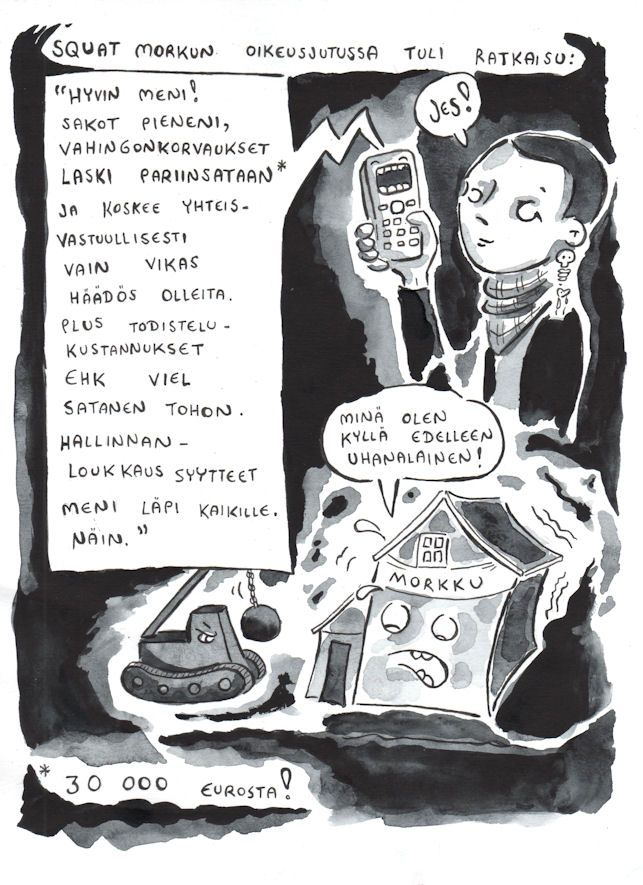 SQUAT MORKUN OIKEUSJUTUSSA TULI RATKAISU:
"HYVIN MENI!
SAKOT PIENENI,
VAHINGONKORVAUKSET
LASKI PARIINSATAAN*
JA KOSKEE YHTEIS-
VASTUULLISESTI
VAIN VIKAS
HÄÄDÖS OLLEITA.
PLUS TODISTELU-
KUSTANNUKSET
EHK VIEL
SATANEN TOHON.
HALLINNAN-
LOUKKAUS SYYTTEET
MENI LÄPI KAIKILLE.
NÄIN."
JES!
MINÄ OLEN
KYLLÄ EDELLEEN
UHANALAINEN!
MORKKU
* 30 000 EUROSTA!